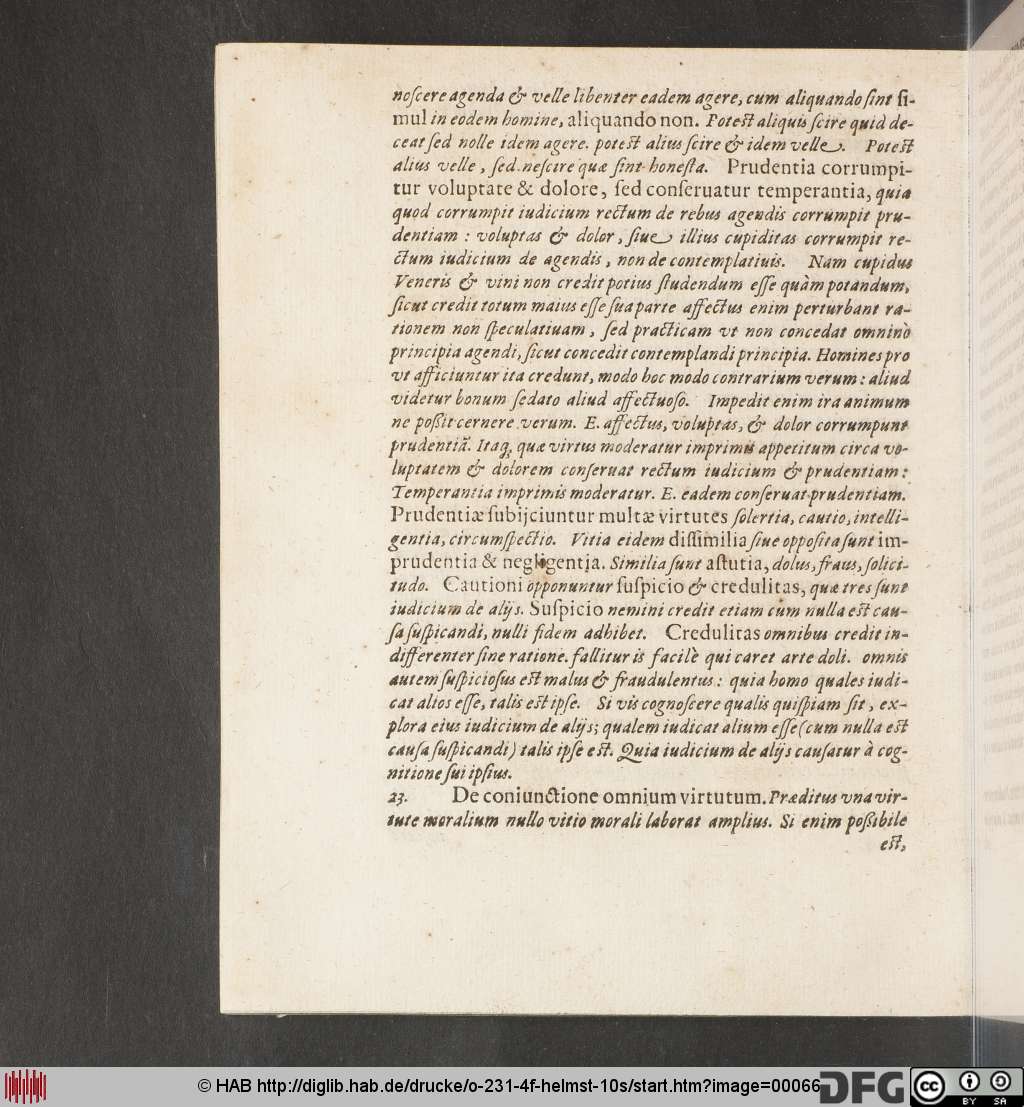 noſcere agenda & velle libenter eadem agere, cum aliquando ſint ſi-
mul in eodem homine, aliquando non. Poteſt aliquis ſcire quid de-
ceat ſed nolle idem agere. poteſt alius ſcire & idem velle. Poteſt
alius velle, ſed neſcire quæ ſint honeſta. Prudentia corrumpi-
tur voluptate & dolore, ſed conſeruatur temperantia, quia
quod corrumpit iudicium rectum de rebus agendis corrumpit pru-
dentiam : voluptas & dolor, ſiue illius cupiditas corrumpit re-
ctum iudicium de agendis, non de contemplatiuis. Nam cupidus
Veneris & vini non credit potius ſtudendum eſſe quàm potandum,
ſicut credit totum maius eſſe ſua parte affectus enim perturbant ra-
tionem non ſpeculatiuam, ſed practicam vt non concedat omninò
principia agendi, ſicut concedit contemplandi principia. Homines pro
vt afficiuntur ita credunt, modo hoc modo contrarium verum : aliud
videtur bonum ſedato aliud affectuoſo. Impedit enim ira animum
ne poßit cernere verum. E. affectus, voluptas, & dolor corrumpunt
prudentiã. Itaq; quæ virtus moderatur imprimis appetitum circa vo-
luptatem & dolorem conſeruat rectum iudicium & prudentiam :
Temperantia imprimis moderatur. E. eadem conſeruat prudentiam.
Prudentiæ ſubijciuntur multæ virtutes ſolertia, cautio, intelli-
gentia, circumſpectio. Vitia eidem diſſimilia ſiue oppoſita ſunt im-
prudentia & negligentia. Similia ſunt aſtutia, dolus, fraus, ſolici-
tudo. Cautioni opponuntur ſuſpicio & credulitas, quæ tres ſunt
iudicium de alijs. Suſpicio nemini credit etiam cum nulla eſt cau-
ſa ſuſpicandi, nulli fidem adhibet. Credulitas omnibus credit in-
differenter ſine ratione. fallitur is facilè qui caret arte doli. omnis
autem ſuſpicioſus eſt malus & fraudulentus : quia homo quales iudi-
cat alios eſſe, talis eſt ipſe. Si vis cognoſcere qualis quiſpiam ſit, ex-
plora eius iudicium de alijs; qualem iudicat alium eſſe (cum nulla eſt
cauſa ſuſpicandi) talis ipſe eſt. Quia iudicium de alijs cauſatur à cog-
nitione ſui ipſius.
23. De coniunctione omnium virtutum. Præditus vna vir-
tute moralium nullo vitio morali laborat amplius. Si enim poßibile
eſt,
© HAB http://diglib.hab.de/drucke/o-231-4f-helmst-10s/start.htm?image=00066
DFG cc BY SA